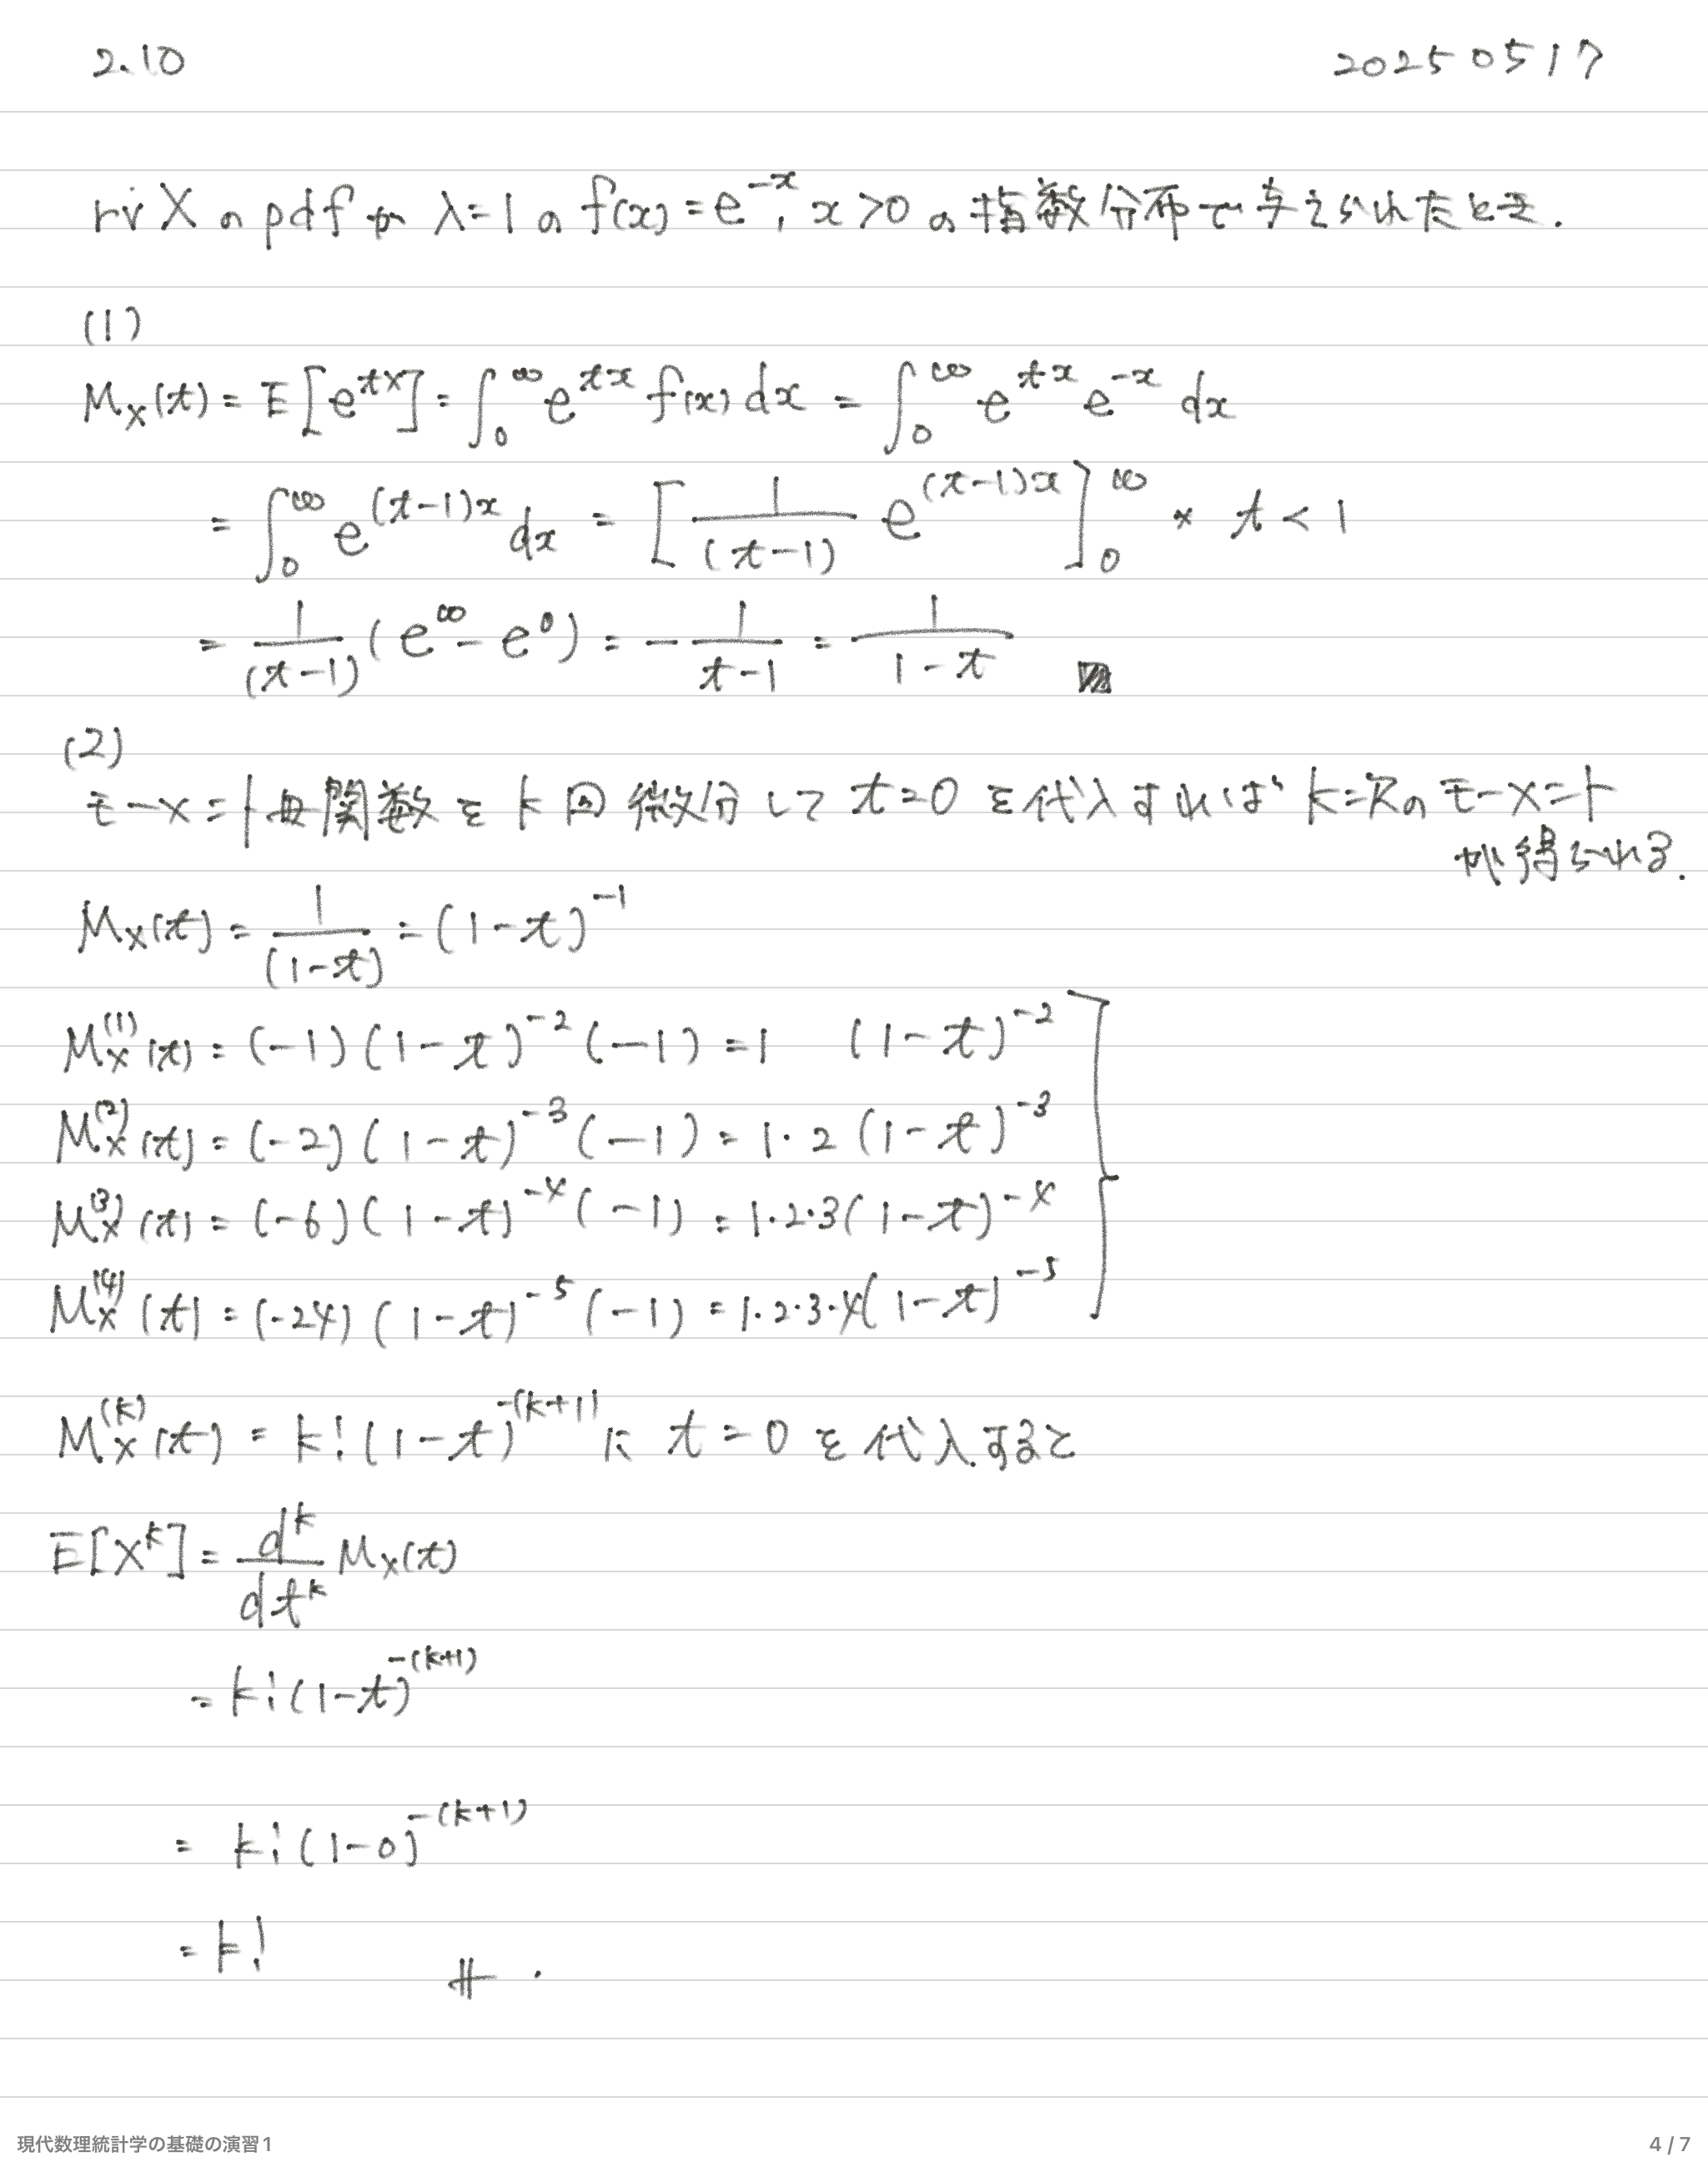 2.10 20250517
rv X の pdf が λ=1 の f(x) = e^{-x}, x>0 の指数分布で与えられたとき.
(1)
M_X(t) = E[e^{tX}] = ∫_0^∞ e^{tx} f(x) dx = ∫_0^∞ e^{tx} e^{-x} dx
= ∫_0^∞ e^{(t-1)x} dx = [ 1/(t-1) e^{(t-1)x} ]_0^∞ * t < 1
= 1/(t-1) (e^∞ - e^0) = - 1/(t-1) = 1/(1-t)
(2)
モーメント母関数を k回微分して t=0 を代入すれば k=kの モーメント
が得られる.
M_X(t) = 1/(1-t) = (1-t)^{-1}
M_X^{(1)}(t) = (-1)(1-t)^{-2}(-1) = 1 (1-t)^{-2}
M_X^{(2)}(t) = (-2)(1-t)^{-3}(-1) = 1·2 (1-t)^{-3}
M_X^{(3)}(t) = (-6)(1-t)^{-4}(-1) = 1·2·3(1-t)^{-4}
M_X^{(4)}(t) = (-24)(1-t)^{-5}(-1) = 1·2·3·4(1-t)^{-5}
M_X^{(k)}(t) = k!(1-t)^{-(k+1)} に t=0 を代入すると
E[X^k] = d^k/dt^k M_X(t)
= k!(1-t)^{-(k+1)}
= k!(1-0)^{-(k+1)}
= k!
現代数理統計学の基礎の演習1 4 / 7